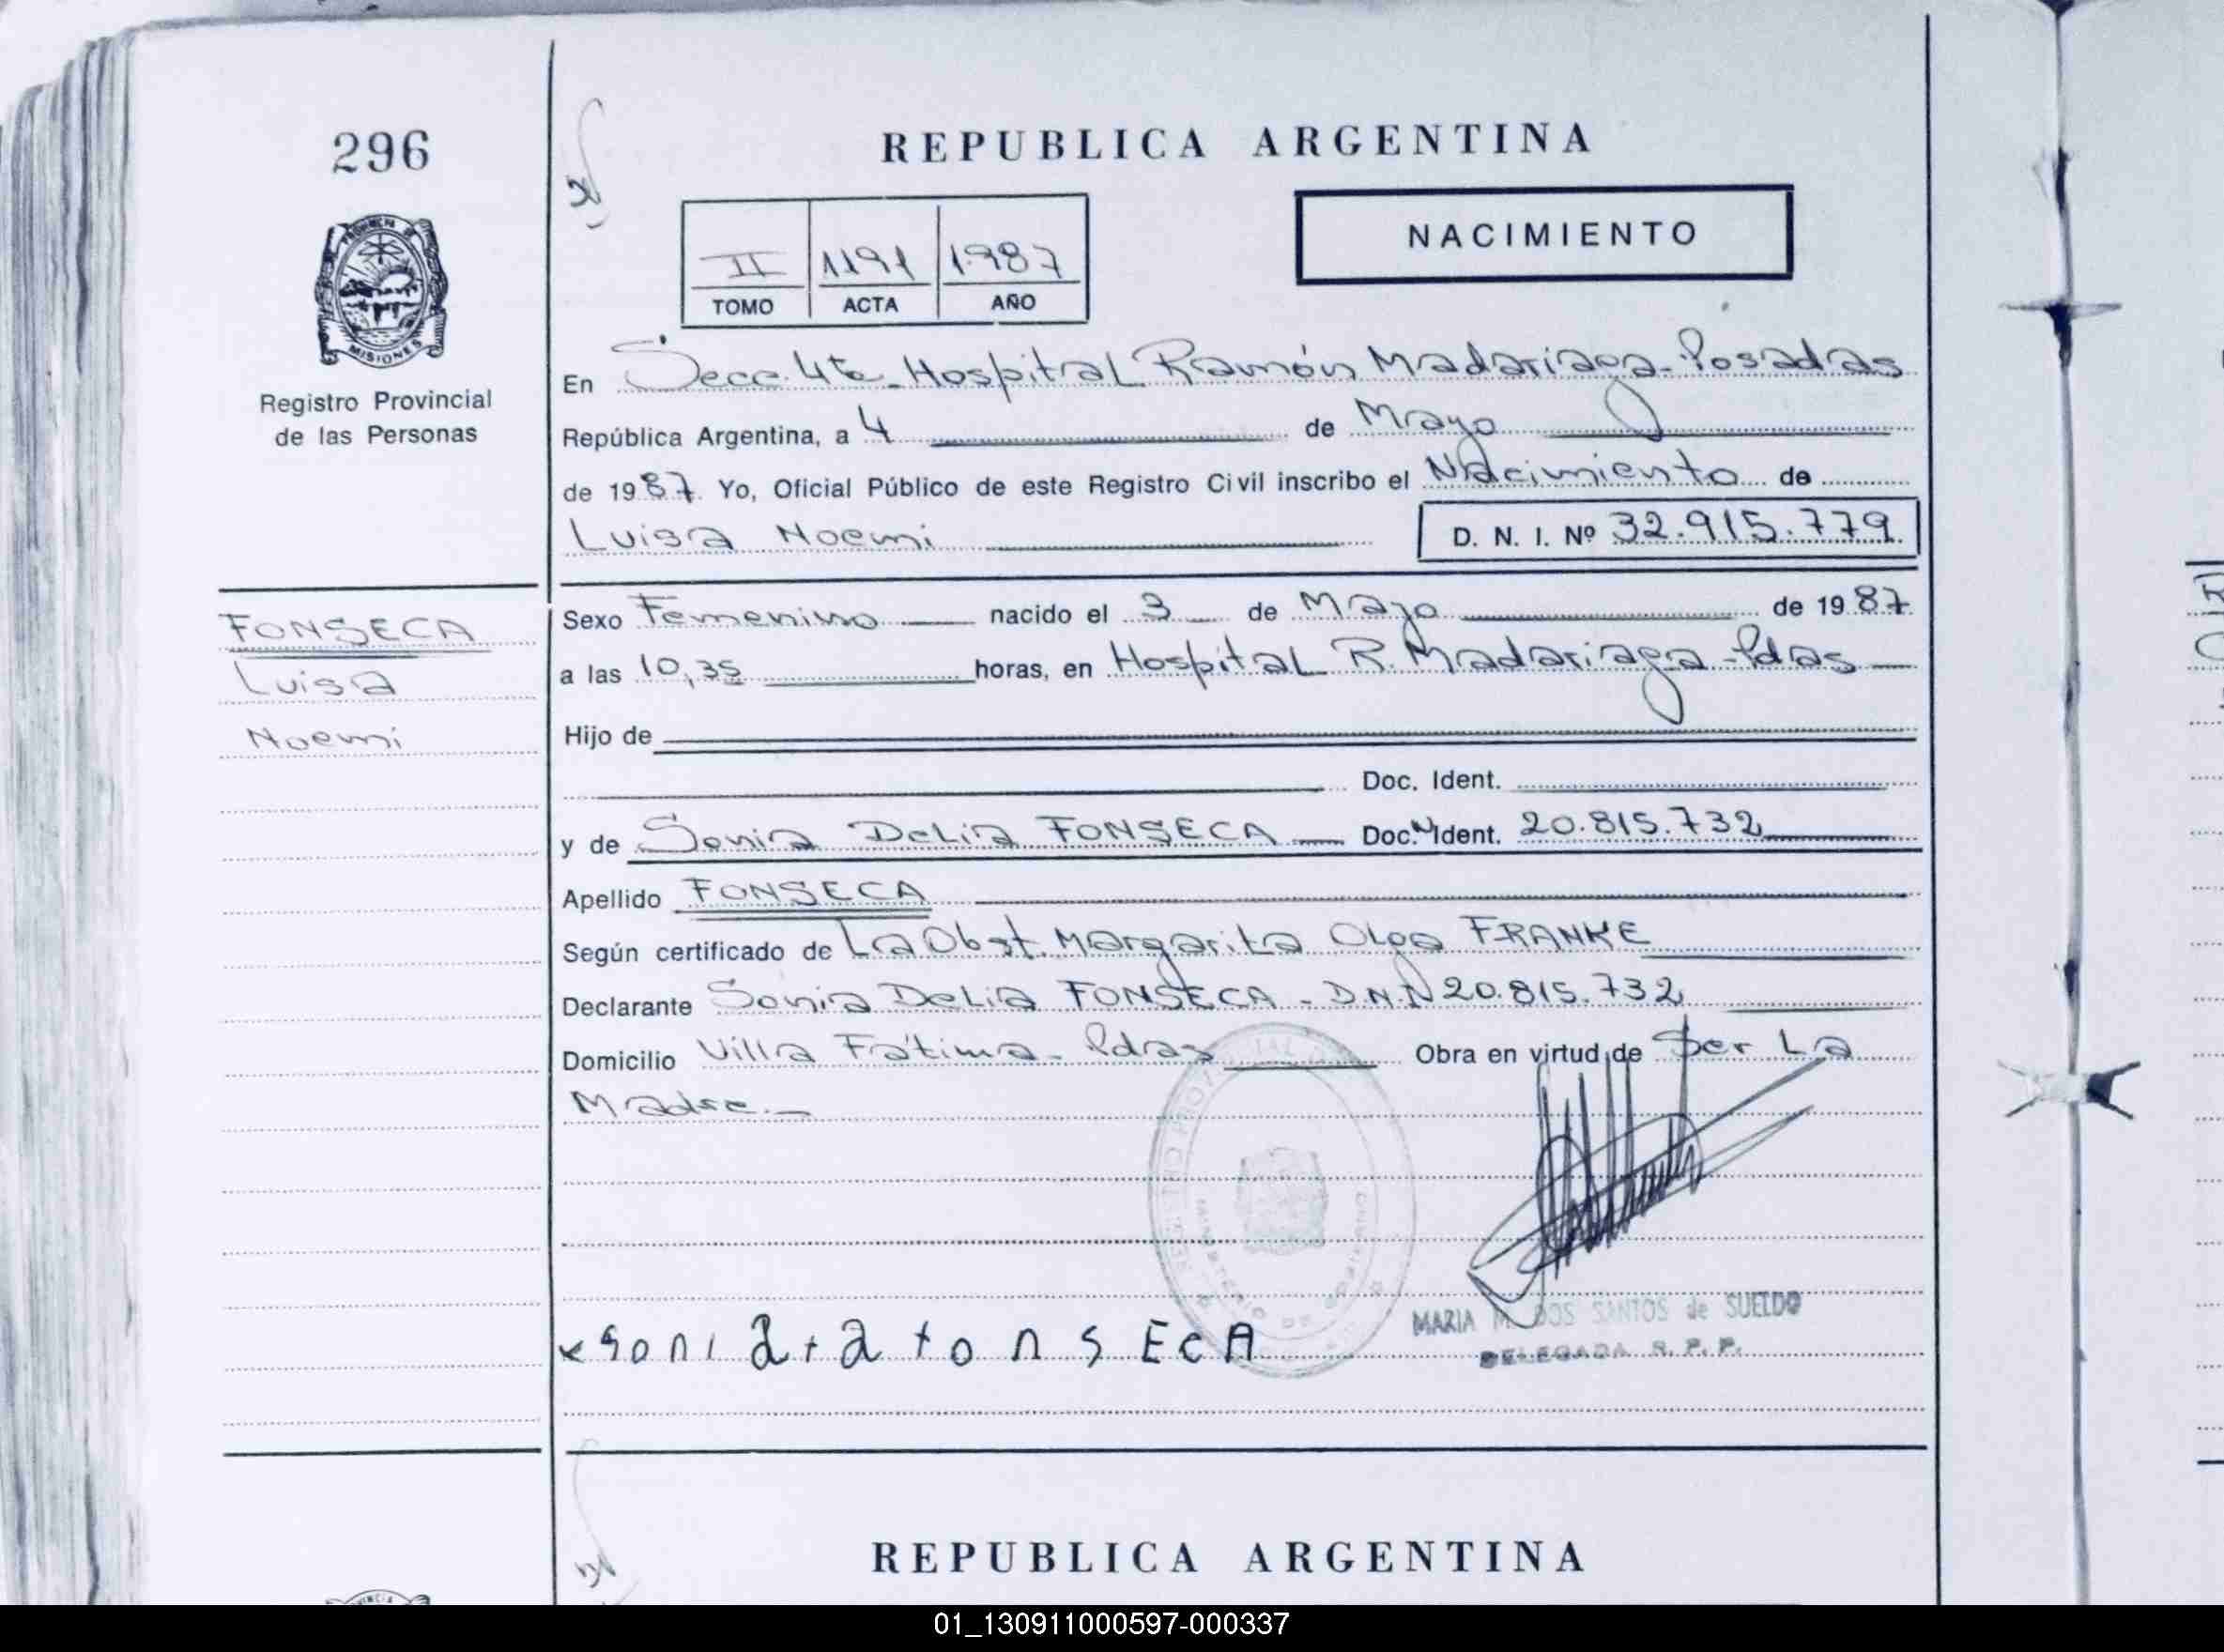 296
PROVINCIA DE
MISIONES
Registro Provincial
de las Personas
FONSECA
Luisa
Noemi
REPUBLICA ARGENTINA
II 1191 1987
TOMO ACTA AÑO
NACIMIENTO
En Secc. 4ta. Hospital Ramón Madariaga - Posadas
República Argentina, a 4 de Mayo
de 1987. Yo, Oficial Público de este Registro Civil inscribo el Nacimiento de
Luisa Noemi D. N. I. Nº 32.915.779
Sexo Femenino nacido el 3 de Mayo de 1987
a las 10,35 horas, en Hospital R. Madariaga - Pdas
Hijo de
Doc. Ident.
y de Sonia Delia FONSECA Doc. Ident. 20.815.732
Apellido FONSECA
Según certificado de La Obst. Margarita Olga FRANKE
Declarante Sonia Delia FONSECA - D.N.I. 20.815.732
Domicilio Villa Fátima - Pdas Obra en virtud de Ser La
Madre.
MARIA M. DOS SANTOS de SUELDO
DELEGADA R. P. P.
x soni a + a fonsEcA
REPUBLICA ARGENTINA
01_130911000597-000337